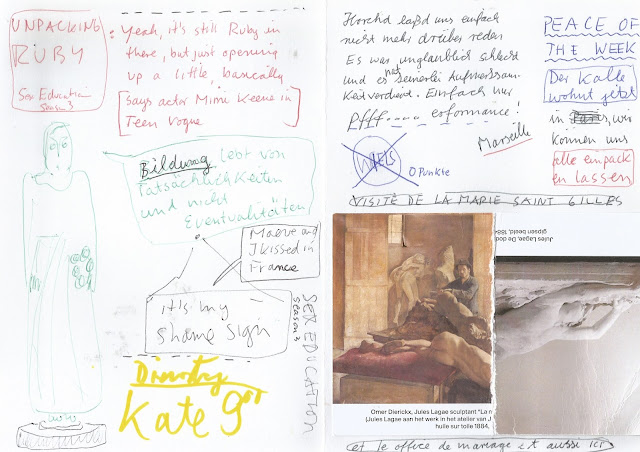 UNPACKING
RUBY
Sex Education
Season 3
: Yeah, it's still Ruby in
there, but just opening
up a little, basically
says actor Mimi Keene in
Teen Vogue
Bildung lebt von
Tatsächlichkeiten
und nicht
Eventualitäten
Maeve and
I kissed in
France
it's my
shame sign
SEX EDUCATION
Season 3
Dienstag
Kate 9⁰⁰
Horchd laßd uns einfach
nicht mehr drüber reden
Es war unglaublich schlecht
und es
net
keinerlei Aufmerksam-
keit verdient. Einfach nur
Pfff..... erformance!
Marseille
0 Punkte
PEACE OF
THE WEEK
Der Kalle
wohnt jetzt
in Paris, wir
können uns
alle einpack
en lassen
VISITE DE LA MARIE SAINT GILLES
Jules Lagae, De
gipsen beeld, 188
Omer Dierickx, Jules Lagae sculptant "La
(Jules Lagae aan het werk in het atelier van J
huile sur toile 1884,
(et le office de mariage est aussi ici)